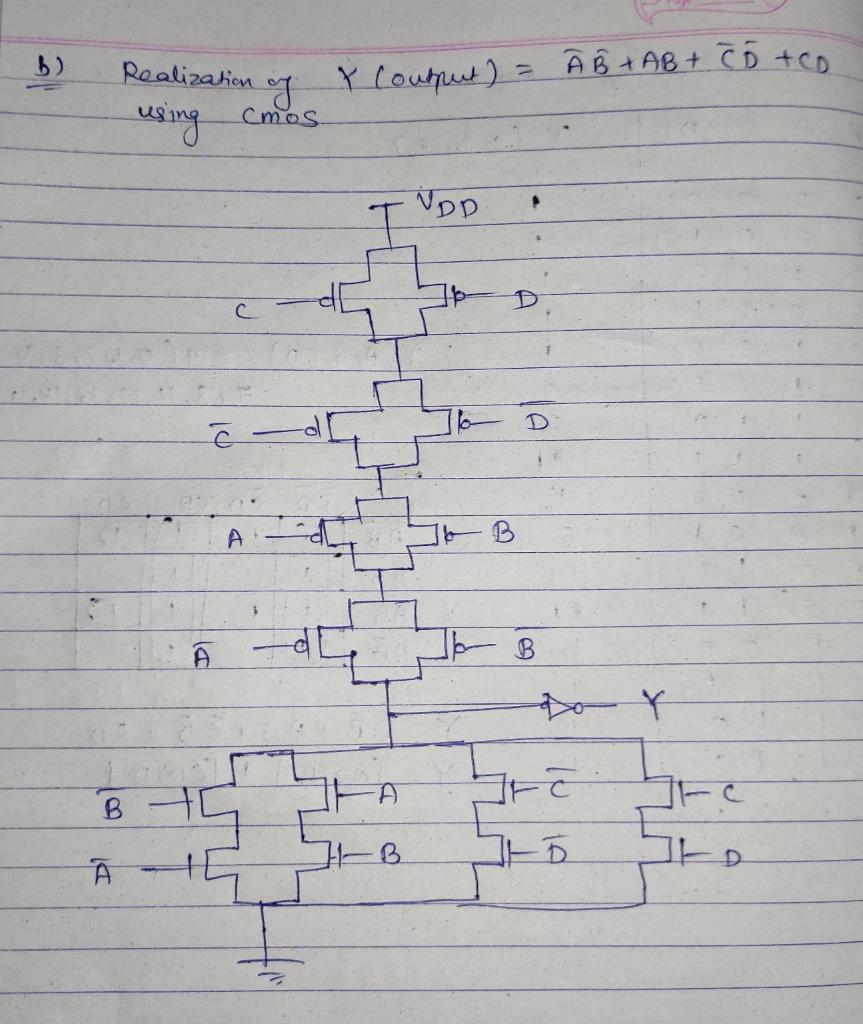 b) Realization of Y (output) = A̅ B̅ + AB + C̅ D̅ + CD
using cmos
VDD
C D
C̅ D̅
A B
A̅ B̅
Y
B̅ A C̅ C
A̅ B D̅ D